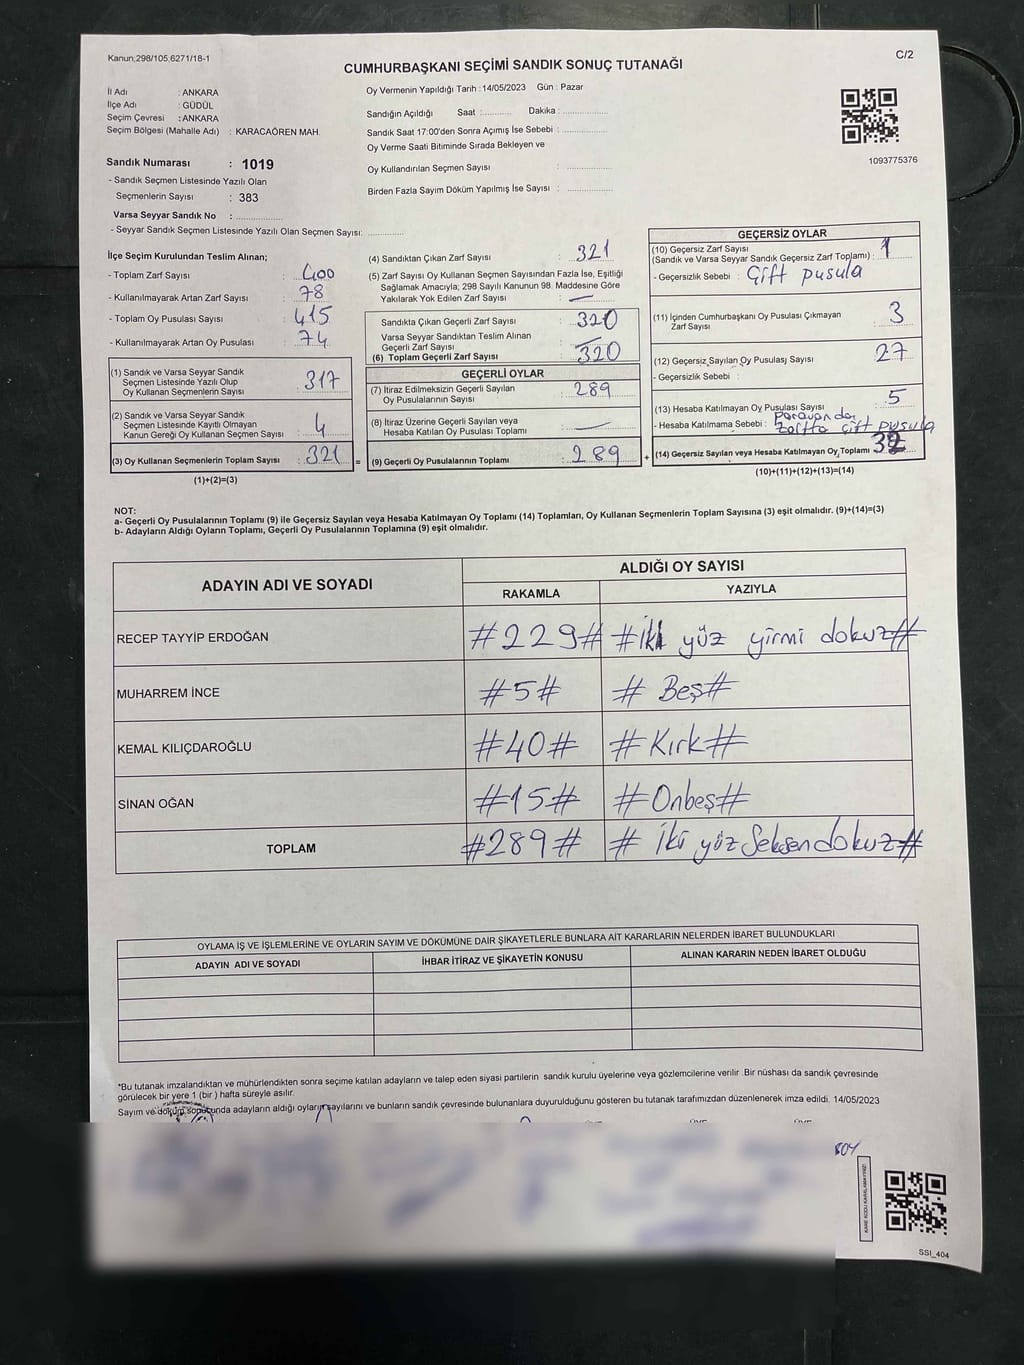 Kanun;298/105,6271/18-1
C/2
CUMHURBAŞKANI SEÇİMİ SANDIK SONUÇ TUTANAĞI
İl Adı : ANKARA
İlçe Adı : GÜDÜL
Seçim Çevresi : ANKARA
Seçim Bölgesi (Mahalle Adı) : KARACAÖREN MAH.
Sandık Numarası : 1019
- Sandık Seçmen Listesinde Yazılı Olan
Seçmenlerin Sayısı : 383
Varsa Seyyar Sandık No : ................
- Seyyar Sandık Seçmen Listesinde Yazılı Olan Seçmen Sayısı: ............
Oy Vermenin Yapıldığı Tarih : 14/05/2023 Gün : Pazar
Sandığın Açıldığı Saat :.......... Dakika :................
Sandık Saat 17:00'den Sonra Açımış İse Sebebi : ................
Oy Verme Saati Bitiminde Sırada Bekleyen ve
Oy Kullandırılan Seçmen Sayısı : ................
Birden Fazla Sayım Döküm Yapılmış İse Sayısı : ................
1093775376
İlçe Seçim Kurulundan Teslim Alınan;
- Toplam Zarf Sayısı : 400
- Kullanılmayarak Artan Zarf Sayısı : 78
- Toplam Oy Pusulası Sayısı : 415
- Kullanılmayarak Artan Oy Pusulası : 74
(1) Sandık ve Varsa Seyyar Sandık
Seçmen Listesinde Yazılı Olup
Oy Kullanan Seçmenlerin Sayısı : 317
(2) Sandık ve Varsa Seyyar Sandık
Seçmen Listesinde Kayıtlı Olmayan
Kanun Gereği Oy Kullanan Seçmen Sayısı : 4
(3) Oy Kullanan Seçmenlerin Toplam Sayısı : 321 =
(1)+(2)=(3)
(4) Sandıktan Çıkan Zarf Sayısı : 321
(5) Zarf Sayısı Oy Kullanan Seçmen Sayısından Fazla İse, Eşitliği
Sağlamak Amacıyla; 298 Sayılı Kanunun 98. Maddesine Göre
Yakılarak Yok Edilen Zarf Sayısı : —
Sandıkta Çıkan Geçerli Zarf Sayısı : 320
Varsa Seyyar Sandıktan Teslim Alınan
Geçerli Zarf Sayısı : —
(6) Toplam Geçerli Zarf Sayısı : 320
GEÇERLİ OYLAR
(7) İtiraz Edilmeksizin Geçerli Sayılan
Oy Pusulalarının Sayısı : 289
(8) İtiraz Üzerine Geçerli Sayılan veya
Hesaba Katılan Oy Pusulası Toplamı : —
(9) Geçerli Oy Pusulalarının Toplamı : 289 +
GEÇERSİZ OYLAR
(10) Geçersiz Zarf Sayısı
(Sandık ve Varsa Seyyar Sandık Geçersiz Zarf Toplamı) : 1
- Geçersizlik Sebebi : Çift pusula
(11) İçinden Cumhurbaşkanı Oy Pusulası Çıkmayan
Zarf Sayısı : 3
(12) Geçersiz Sayılan Oy Pusulası Sayısı : 27
- Geçersizlik Sebebi :
(13) Hesaba Katılmayan Oy Pusulası Sayısı : 5
- Hesaba Katılmama Sebebi : Paravanda,
zarfta çift pusula
(14) Geçersiz Sayılan veya Hesaba Katılmayan Oy Toplamı : 32
(10)+(11)+(12)+(13)=(14)
NOT:
a- Geçerli Oy Pusulalarının Toplamı (9) ile Geçersiz Sayılan veya Hesaba Katılmayan Oy Toplamı (14) Toplamları, Oy Kullanan Seçmenlerin Toplam Sayısına (3) eşit olmalıdır. (9)+(14)=(3)
b- Adayların Aldığı Oyların Toplamı, Geçerli Oy Pusulalarının Toplamına (9) eşit olmalıdır.
ADAYIN ADI VE SOYADI
ALDIĞI OY SAYISI
RAKAMLA YAZIYLA
RECEP TAYYİP ERDOĞAN #229# #İki yüz yirmi dokuz#
MUHARREM İNCE #5# # Beş#
KEMAL KILIÇDAROĞLU #40# #Kırk#
SİNAN OĞAN #15# #Onbeş#
TOPLAM #289# # İki yüz Seksendokuz#
OYLAMA İŞ VE İŞLEMLERİNE VE OYLARIN SAYIM VE DÖKÜMÜNE DAİR ŞİKAYETLERLE BUNLARA AİT KARARLARIN NELERDEN İBARET BULUNDUKLARI
ADAYIN ADI VE SOYADI İHBAR İTİRAZ VE ŞİKAYETİN KONUSU ALINAN KARARIN NEDEN İBARET OLDUĞU
*Bu tutanak imzalandıktan ve mühürlendikten sonra seçime katılan adayların ve talep eden siyasi partilerin sandık kurulu üyelerine veya gözlemcilerine verilir .Bir nüshası da sandık çevresinde
görülecek bir yere 1 (bir ) hafta süreyle asılır.
Sayım ve döküm sonucunda adayların aldığı oyların sayılarını ve bunların sandık çevresinde bulunanlara duyurulduğunu gösteren bu tutanak tarafımızdan düzenlenerek imza edildi. 14/05/2023
KARE KODU KARALAMAYINIZ!
SSI_404